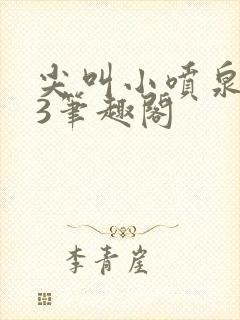 尖叫小喷泉
3笔趣阁
李青崖